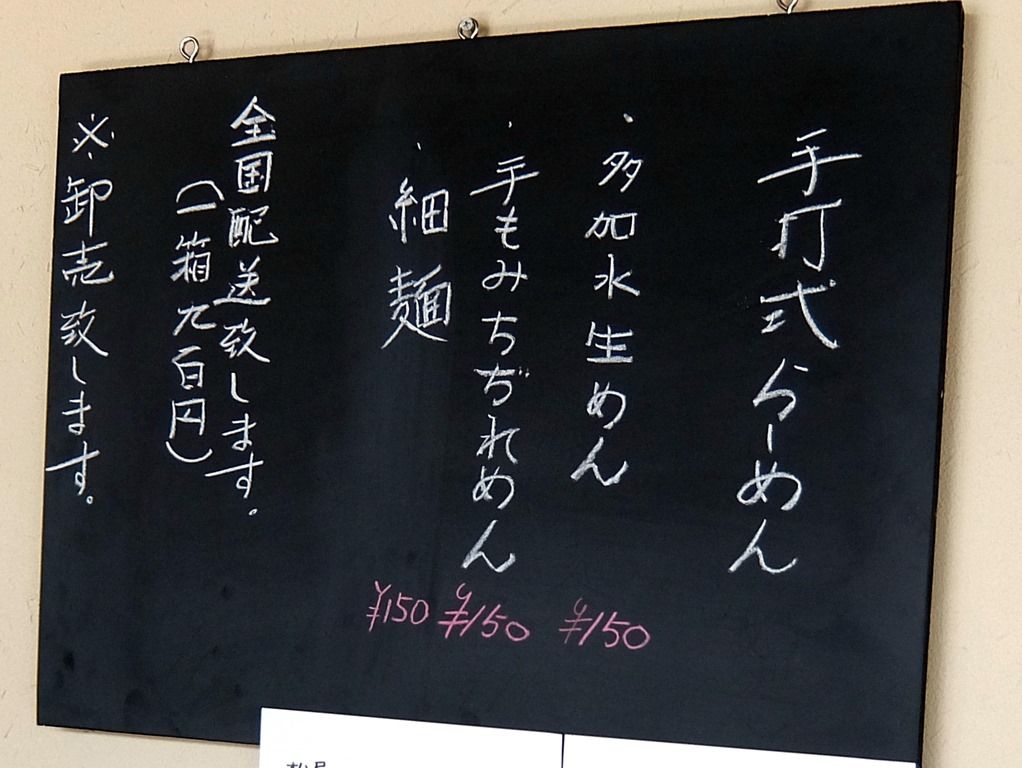 手打式らーめん
・多加水生めん ¥150
・手もみちぢれめん ¥150
・細麺 ¥150
全国配送致します。
(一箱九百円)
※卸売致します。